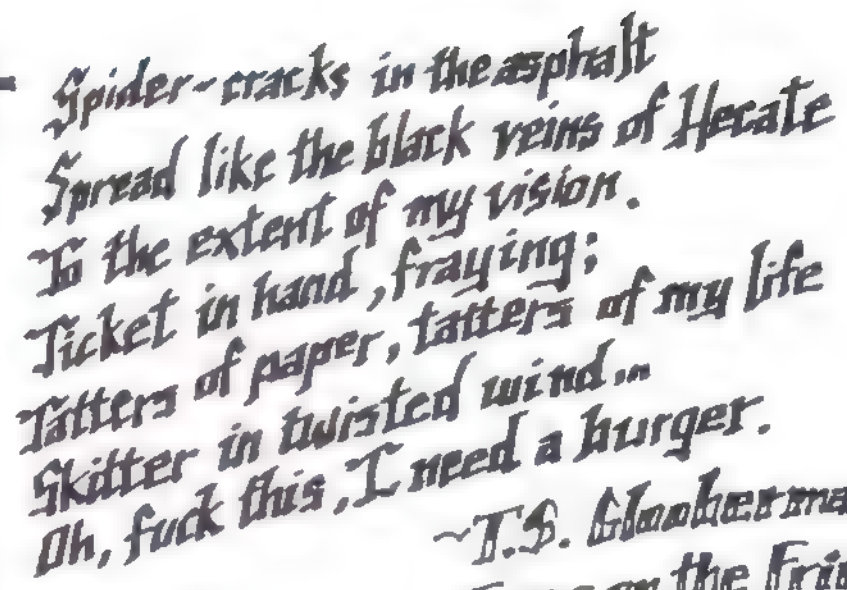 Spider-cracks in the asphalt
Spread like the black veins of Hecate
To the extent of my vision.
Ticket in hand, fraying;
Tatters of paper, tatters of my life
Skitter in twisted wind...
Oh, fuck this, I need a burger.
~T.S.
on the